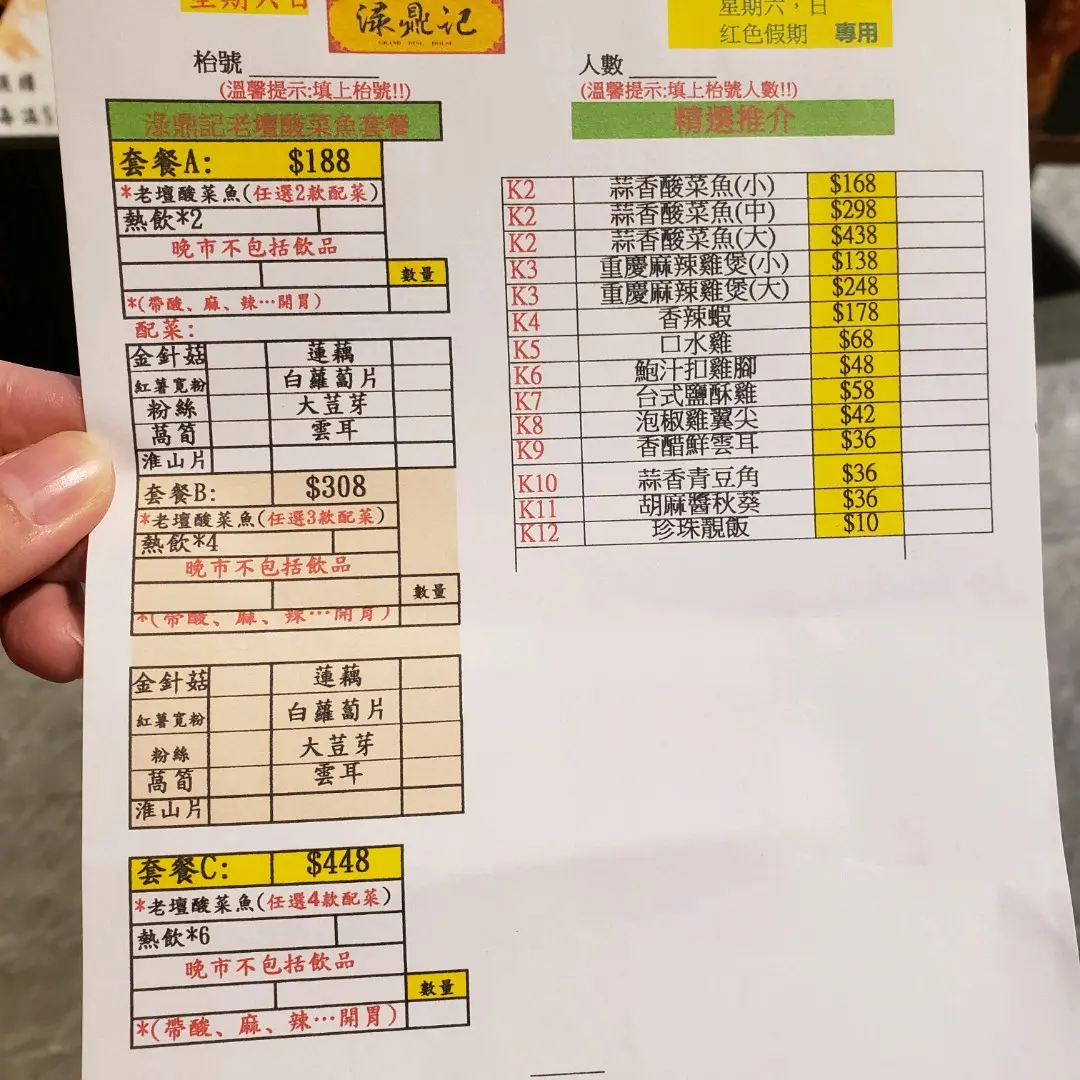 星期六日
渌鼎记
GRAND DING HOUSE
星期六，日
红色假期 專用
枱號
(溫馨提示:填上枱號!!)
人數
(溫馨提示:填上枱號人數!!)
渌鼎記老壇酸菜魚套餐
套餐A: $188
*老壇酸菜魚(任選2款配菜)
熱飲*2
晚市不包括飲品
數量
*(帶酸、麻、辣…開胃)
配菜:
金針菇 蓮藕
紅薯寬粉 白蘿蔔片
粉絲 大荳芽
萵筍 雲耳
淮山片
套餐B: $308
*老壇酸菜魚(任選3款配菜)
熱飲*4
晚市不包括飲品
數量
*(帶酸、麻、辣…開胃)
金針菇 蓮藕
紅薯寬粉 白蘿蔔片
粉絲 大荳芽
萵筍 雲耳
淮山片
套餐C: $448
*老壇酸菜魚(任選4款配菜)
熱飲*6
晚市不包括飲品
數量
*(帶酸、麻、辣…開胃)
精選推介
K2 蒜香酸菜魚(小) $168
K2 蒜香酸菜魚(中) $298
K2 蒜香酸菜魚(大) $438
K3 重慶麻辣雞煲(小) $138
K3 重慶麻辣雞煲(大) $248
K4 香辣蝦 $178
K5 口水雞 $68
K6 鮑汁扣雞腳 $48
K7 台式鹽酥雞 $58
K8 泡椒雞翼尖 $42
K9 香醋鮮雲耳 $36
K10 蒜香青豆角 $36
K11 胡麻醬秋葵 $36
K12 珍珠靚飯 $10